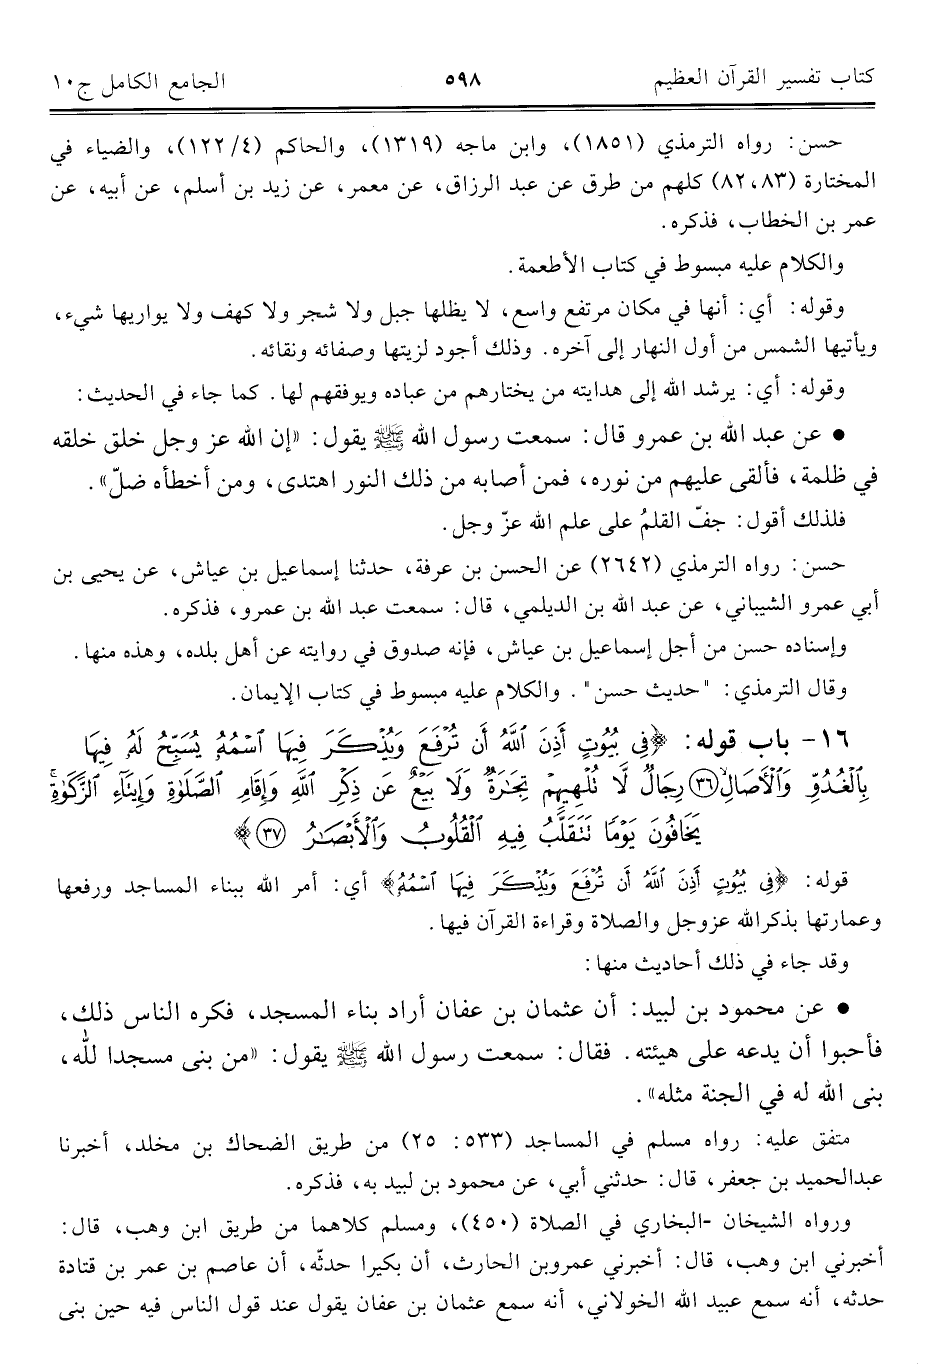 كتاب تفسير القرآن العظيم ٥٩٨ الجامع الكامل ج١٠
حسن: رواه الترمذي (١٨٥١)، وابن ماجه (١٣١٩)، والحاكم (٤/ ١٢٢)، والضياء في
المختارة (٨٢،٨٣) كلهم من طرق عن عبد الرزاق، عن معمر، عن زيد بن أسلم، عن أبيه، عن
عمر بن الخطاب، فذكره.
والكلام عليه مبسوط في كتاب الأطعمة.
وقوله: أي: أنها في مكان مرتفع واسع، لا يظلها جبل ولا شجر ولا كهف ولا يواريها شيء،
ويأتيها الشمس من أول النهار إلى آخره. وذلك أجود لزيتها وصفائه ونقائه.
وقوله: أي: يرشد الله إلى هدايته من يختارهم من عباده ويوفقهم لها. كما جاء في الحديث:
• عن عبد الله بن عمرو قال: سمعت رسول الله ﷺ يقول: «إن الله عز وجل خلق خلقه
في ظلمة، فألقى عليهم من نوره، فمن أصابه من ذلك النور اهتدى، ومن أخطأه ضلّ».
فلذلك أقول: جفّ القلمُ على علم الله عزّ وجل.
حسن: رواه الترمذي (٢٦٤٢) عن الحسن بن عرفة، حدثنا إسماعيل بن عياش، عن يحيى بن
أبي عمرو الشيباني، عن عبد الله بن الديلمي، قال: سمعت عبد الله بن عمرو، فذكره.
وإسناده حسن من أجل إسماعيل بن عياش، فإنه صدوق في روايته عن أهل بلده، وهذه منها.
وقال الترمذي: "حديث حسن". والكلام عليه مبسوط في كتاب الإيمان.
١٦- باب قوله: ﴿فِي بُيُوتٍ أَذِنَ ٱللَّهُ أَن تُرۡفَعَ وَيُذۡكَرَ فِيهَا ٱسۡمُهُۥ يُسَبِّحُ لَهُۥ فِيهَا
بِٱلۡغُدُوِّ وَٱلۡأٓصَالِ ٣٦ رِجَالٞ لَّا تُلۡهِيهِمۡ تِجَٰرَةٞ وَلَا بَيۡعٌ عَن ذِكۡرِ ٱللَّهِ وَإِقَامِ ٱلصَّلَوٰةِ وَإِيتَآءِ ٱلزَّكَوٰةِ
يَخَافُونَ يَوۡمٗا تَتَقَلَّبُ فِيهِ ٱلۡقُلُوبُ وَٱلۡأَبۡصَٰرُ ٣٧﴾
قوله: ﴿فِي بُيُوتٍ أَذِنَ ٱللَّهُ أَن تُرۡفَعَ وَيُذۡكَرَ فِيهَا ٱسۡمُهُۥ﴾ أي: أمر الله ببناء المساجد ورفعها
وعمارتها بذكرالله عزوجل والصلاة وقراءة القرآن فيها.
وقد جاء في ذلك أحاديث منها:
• عن محمود بن لبيد: أن عثمان بن عفان أراد بناء المسجد، فكره الناس ذلك،
فأحبوا أن يدعه على هيئته. فقال: سمعت رسول الله ﷺ يقول: «من بنى مسجدا لله،
بنى الله له في الجنة مثله».
متفق عليه: رواه مسلم في المساجد (٥٣٣: ٢٥) من طريق الضحاك بن مخلد، أخبرنا
عبدالحميد بن جعفر، قال: حدثني أبي، عن محمود بن لبيد به، فذكره.
ورواه الشيخان -البخاري في الصلاة (٤٥٠)، ومسلم كلاهما من طريق ابن وهب، قال:
أخبرني ابن وهب، قال: أخبرني عمروبن الحارث، أن بكيرا حدثّه، أن عاصم بن عمر بن قتادة
حدثه، أنه سمع عبيد الله الخولاني، أنه سمع عثمان بن عفان يقول عند قول الناس فيه حين بنى